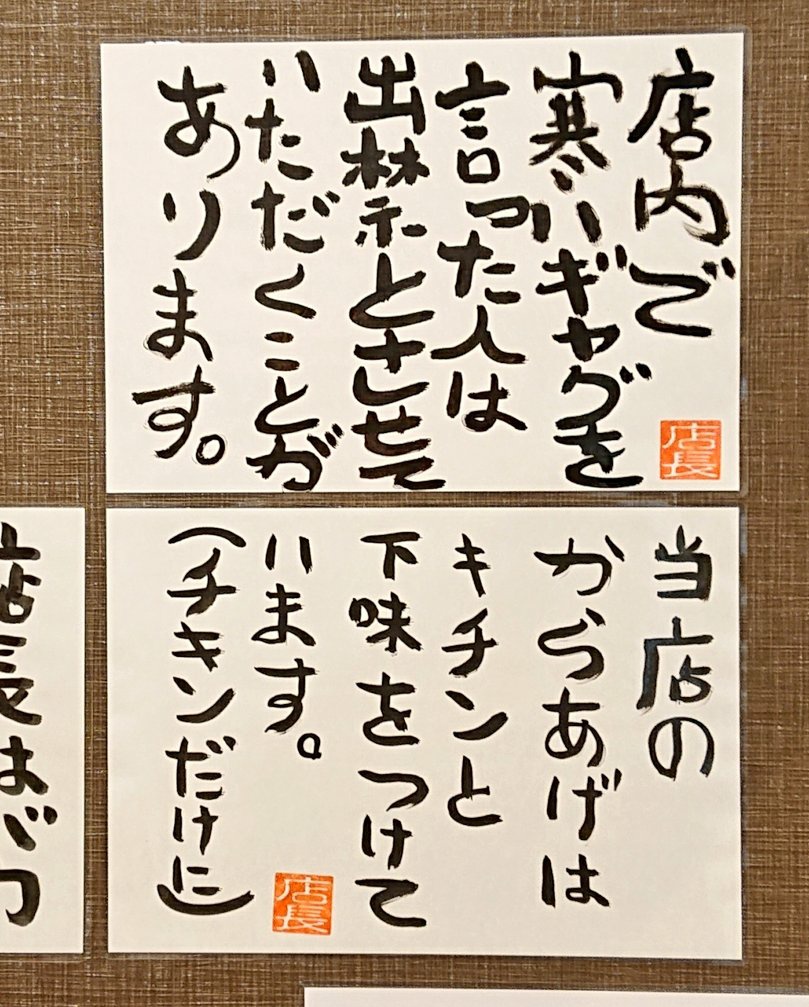 店内で
寒いギャグを
言った人は
出禁とさせて
いただくことが
あります。
店長
当店の
からあげは
キチンと
下味をつけて
います。
(チキンだけに)
店長
店長はバ